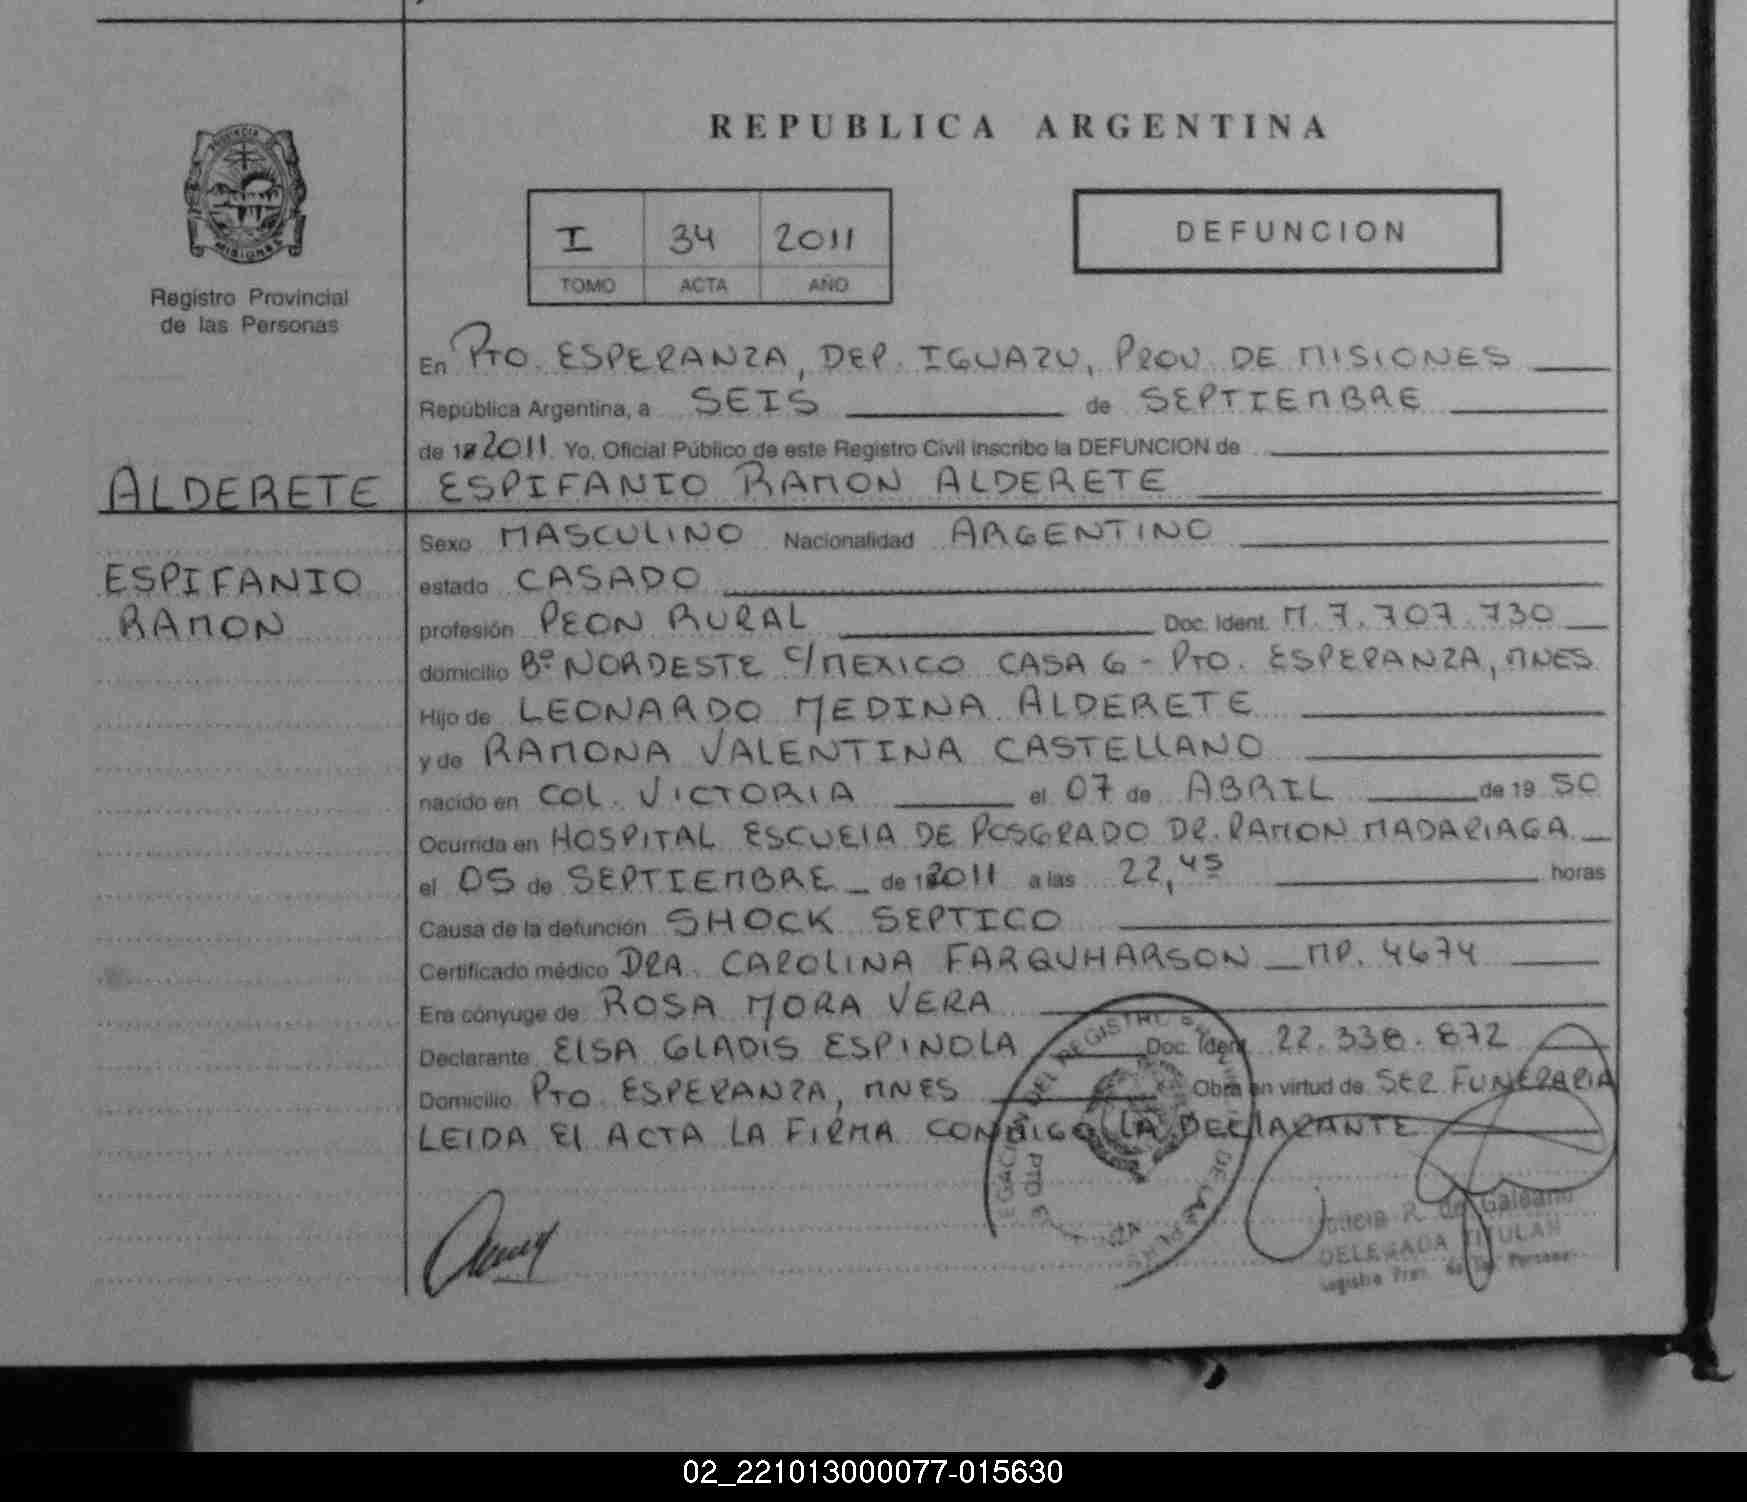 REPUBLICA ARGENTINA
PROVINCIA
MISIONES
Registro Provincial
de las Personas
I 34 2011
TOMO ACTA AÑO
DEFUNCION
En PTO. ESPERANZA, DEP. IGUAZU, PROV. DE MISIONES
República Argentina, a SEIS de SEPTIEMBRE
de 2011 Yo, Oficial Público de este Registro Civil inscribo la DEFUNCION de
ALDERETE ESPIFANIO RAMON ALDERETE
Sexo MASCULINO Nacionalidad ARGENTINO
ESPIFANIO estado CASADO
RAMON profesión PEON RURAL Doc. Ident. M. 7.707.730
domicilio Bº NORDESTE C/MEXICO CASA 6 - PTO. ESPERANZA, MNES
Hijo de LEONARDO MEDINA ALDERETE
y de RAMONA VALENTINA CASTELLANO
nacido en COL. VICTORIA el 07 de ABRIL de 19 50
Ocurrida en HOSPITAL ESCUELA DE POSGRADO DR. RAMON MADARIAGA
el 05 de SEPTIEMBRE de 2011 a las 22,45 horas
Causa de la defunción SHOCK SEPTICO
Certificado médico DRA. CAROLINA FARQUHARSON MP. 4674
Era cónyuge de ROSA MORA VERA
Declarante ELSA GLADIS ESPINOLA Doc. Ident. 22.338.872
Domicilio PTO. ESPERANZA, MNES Obra en virtud de SER. FUNERARIA
LEIDA EL ACTA LA FIRMA CONMIGO LA DECLARANTE
R. de Galeano
DELEGADA TITULAR
02_221013000077-015630